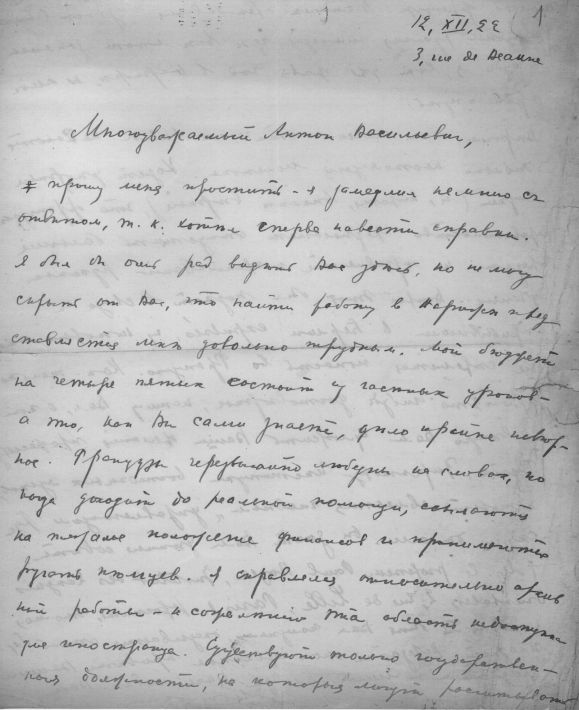 1
12, XII, 22
3, rue de Beaune
Многоуважаемый Антон Васильевич,
прошу меня простить - я замедлил немного съ
отвѣтом, т. к. хотѣл сперва навести справки.
Я был бы очень рад видѣть Вас здѣсь, но не могу
скрыть от Вас, что найти работу в Париже пред
ставляется мнѣ довольно трудным. Мой бюджет
на четыре пятых состоит из частных уроков -
а это, как Вы сами знаете, дѣло крайне невѣр-
ное. Французы чрезвычайно любезны на словах, но
когда доходит до реальной помощи, ссылаются
на тяжелое положение финансов и принимаются
ругать нѣмцев. Я справлялся относительно архив
ной работы - к сожалѣнию эта область недоступна
для иностранца. Существуют только государствен-
ныя должности, на которыя могут разсчитывать